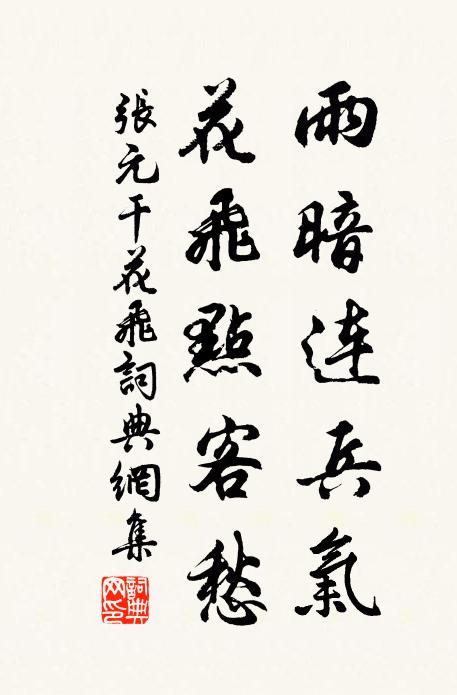 雨暗連兵氣
花飛點客愁
張元干花飛詞典網集
詞典网印